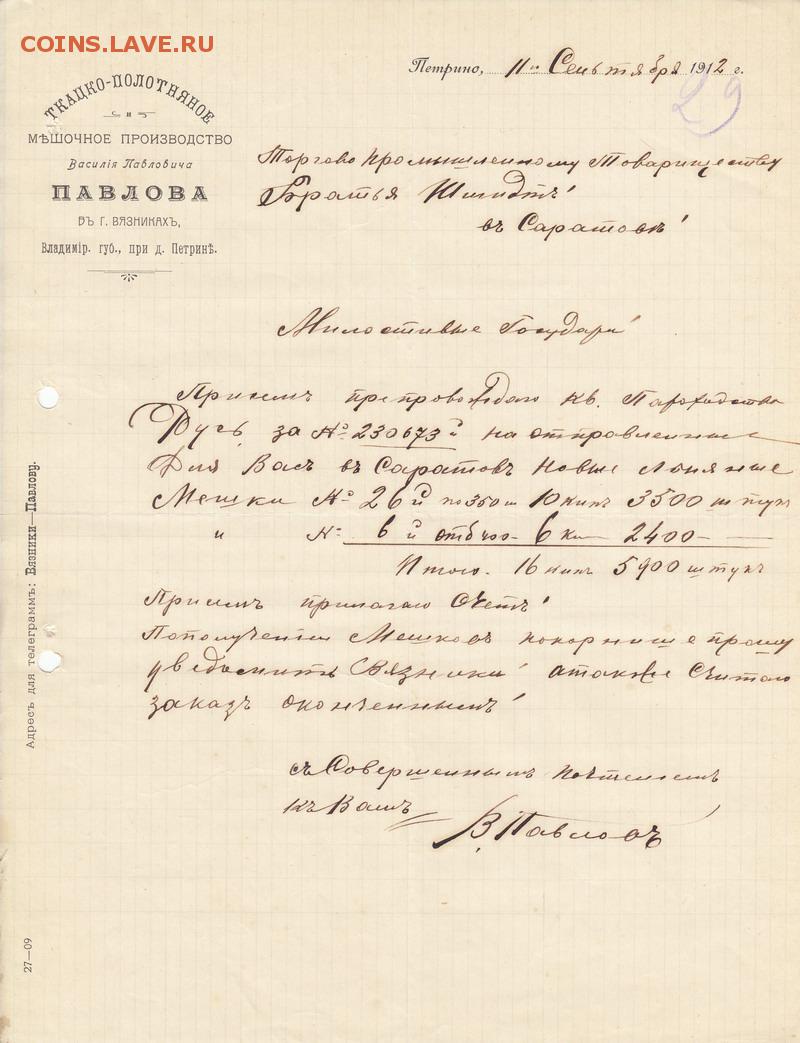 COINS.LAVE.RU
ТКАЦКО-ПОЛОТНЯНОЕ
и
МѢШОЧНОЕ ПРОИЗВОДСТВО
Василія Павловича
ПАВЛОВА
ВЪ Г. ВЯЗНИКАХЪ,
Владимір. губ., при д. Петринѣ.
Петрино, 11го Сентября 1912 г.
29
Торгово промышленному Товариществу
Братья Шмидтъ
въ Саратовѣ
Милостивые Государи
Присемъ препровождаю кв. Параходства
Русь за № 230673й на отправленные
Для Васъ въ Саратовъ Новые Льняные
Мешки № 26й по 350 ш 10 кипъ 3500 штукъ
" № 6й от 400 - 6 ки 2400
Итого. 16 кипъ 5900 штукъ
Присемъ прилагаю Счетъ
Пополученіи Мешковъ покорнише прошу
уведомить Вязники атакже Считаю
заказъ оконченнымъ
съ Совершеннымъ почтеніемъ
къ Вамъ
В. Павловъ
Адресъ для телеграммъ: Вязники—Павлову.
27—09